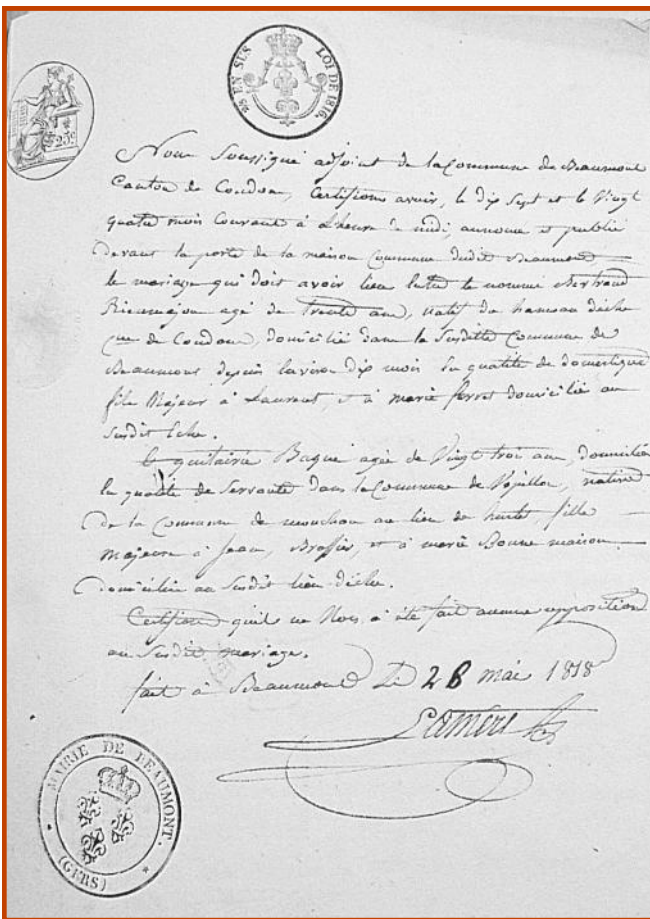 25 EN SUS LOI DE 1816.
25c
Nous Soussigné adjoint de la Commune de Beaumont
Canton de Condom, Certifions avoir, le dix Sept et le Vingt
quatre mois Courant à Lheure de midi, annoncé et publié
devant la porte de la maison Commune dudit Beaumont
le mariage qui doit avoir lieu Entre le nommé Bertrand
agé de trente ans, natif du hameau déche
de Condom, domicilié dans la Susditte Commune de
Beaumont depuis Environ dix mois En qualité de domestique
fils Majeur à Laurent, et à marie ferret domicilié au
Susdit Eche.
Et quitairie Baqué agée de Vingt trois ans, domiciliée
En qualité de Servante dans la Commune de Vopillon, native
de la Commune de mouchan au lieu de fille
Majeure à Jean, Brassier, et à marie Bonnemaison
domiciliée au Susdit lieu déche.
Certifions quil ne Nous a été fait aucune opposition
au Susdit mariage.
fait à Beaumont Le 28 mai 1818
MAIRIE DE BEAUMONT.
(GERS)